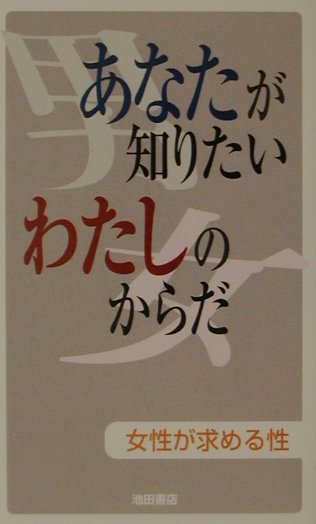 男
女
あなたが
知りたい
わたしの
からだ
女性が求める性
池田書店